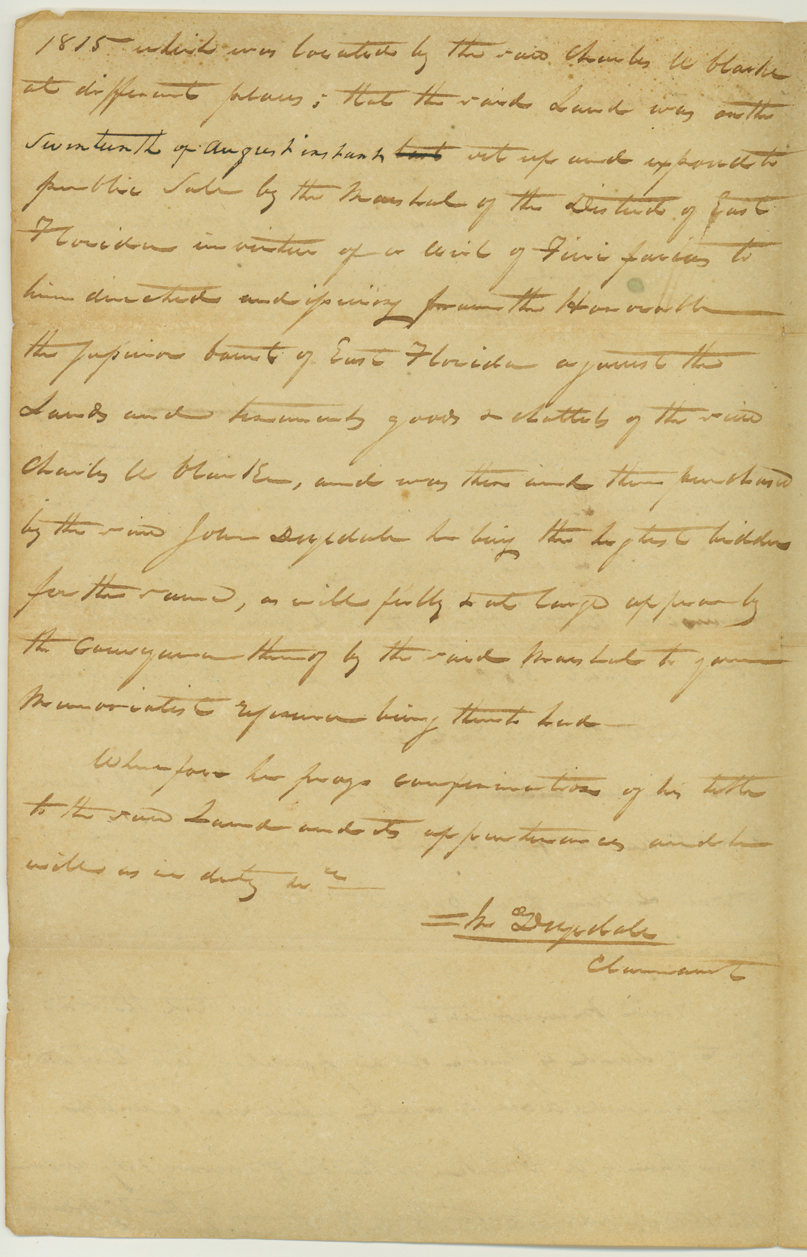 1815 which was located by the said Charles W Clarke
at different places; that the said Land was on the
Seventeenth of August instant last set up and exposed to
public Sale by the Marshal of the District of East
Florida in virtue of a writ of Fieri facias to
him directed and issuing from the Honorable
the Superior Court of East Florida against the
Lands and tenements goods & chattels of the said
Charles W Clarke, and was then and there purchased
by the said John Drysdale he being the highest bidder
for the same, as will fully & at large appear by
the Conveyance thereof by the said Marshal to your
Memorialist reference being thereto had
Wherefore he prays confirmation of his title
to the said Land and its appurtenances and he
will as in duty &c
Jn Drysdale
Claimant